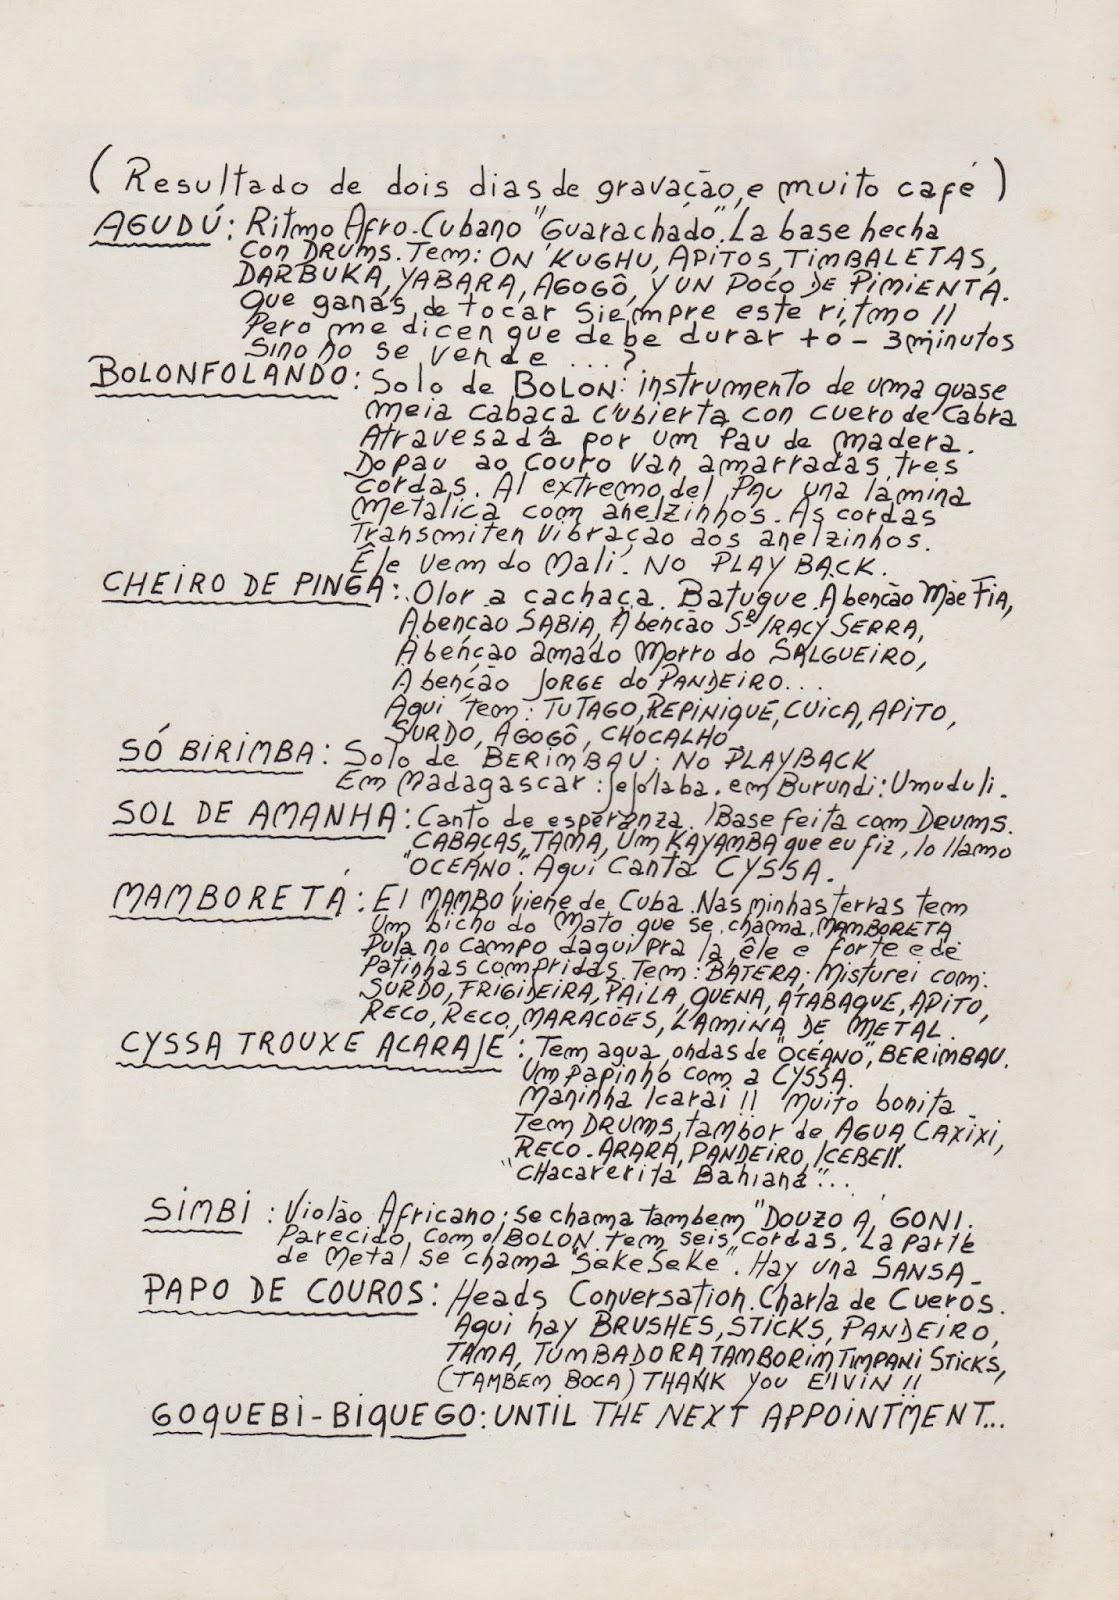 (Resultado de dois dias de gravação, e muito café)
AGUDÚ: Ritmo Afro-Cubano "Guarachado". La base hecha
con DRUMS. Tem: ON'KUGHU, APITOS, TIMBALETAS,
DARBUKA, YABARA, AGOGÔ, Y UN POCO DE PIMIENTA.
Que ganas de tocar siempre este ritmo!!
Pero me dicen que debe durar +o- 3 minutos
sino no se vende ...?
BOLONFOLANDO: Solo de BOLON: instrumento de uma quase
meia cabaça cubierta con cuero de cabra
Atravesada por um Pau de madera.
Do pau ao couro van amarradas tres
cordas. Al extremo del Pau una lámina
metalica com anelzinhos. As cordas
Transmiten vibração aos anelzinhos.
Êle vem do Mali. NO PLAY BACK.
CHEIRO DE PINGA: Olor a cachaça. Batuque. A benção Mãe FIA,
A benção SABIA, A benção Sª IRACY SERRA,
A benção amado Morro do SALGUEIRO,
A benção JORGE do PANDEIRO...
Aqui tem: TUTAGO, REPINIQUE, CUICA, APITO,
SURDO, AGOGÔ, CHOCALHO
SÓ BIRIMBA: Solo de BERIMBAU: NO PLAYBACK
Em Madagascar: Jejolaba. em Burundi: Umuduli.
SOL DE AMANHA: Canto de esperanza. Base feita com Drums.
CABAÇAS, TAMA, Um KAYAMBA que eu fiz, lo llamo
"OCEANO". Aqui Canta CYSSA.
MAMBORETÁ: El MAMBO viene de Cuba. Nas minhas terras tem
Um bicho do Mato que se chama MAMBORETA
Pula no campo daqui pra la, êle e forte e de
Patinhas compridas. Tem: BATERA; Misturei com:
SURDO, FRIGIDEIRA, PAILA, QUENA, ATABAQUE, APITO,
RECO, RECO, MARACÕES, LAMINA DE METAL.
CYSSA TROUXE ACARAJE: Tem agua, ondas de "OCEANO", BERIMBAU.
Um papinho com a CYSSA.
Maninha Icarai!! Muito bonita
Tem DRUMS, tambor de AGUA, CAXIXI,
RECO-ARARA, PANDEIRO, ICEBELL.
"Chacarerita Bahiana"...
SIMBI: Violão Africano; se chama tambem "DOUZO A, GONI.
Parecido com o BOLON tem seis cordas. La parte
de Metal se chama "SekeSeke". Hay una SANSA-
PAPO DE COUROS: Heads Conversation. Charla de Cueros.
Aqui hay BRUSHES, STICKS, PANDEIRO,
TAMA, TUMBADORA, TAMBORIM, TIMPANI STICKS,
(TAMBEM BOCA) THANK YOU ElVIN!!
GOQUEBI-BIQUEGO: UNTIL THE NEXT APPOINTMENT...